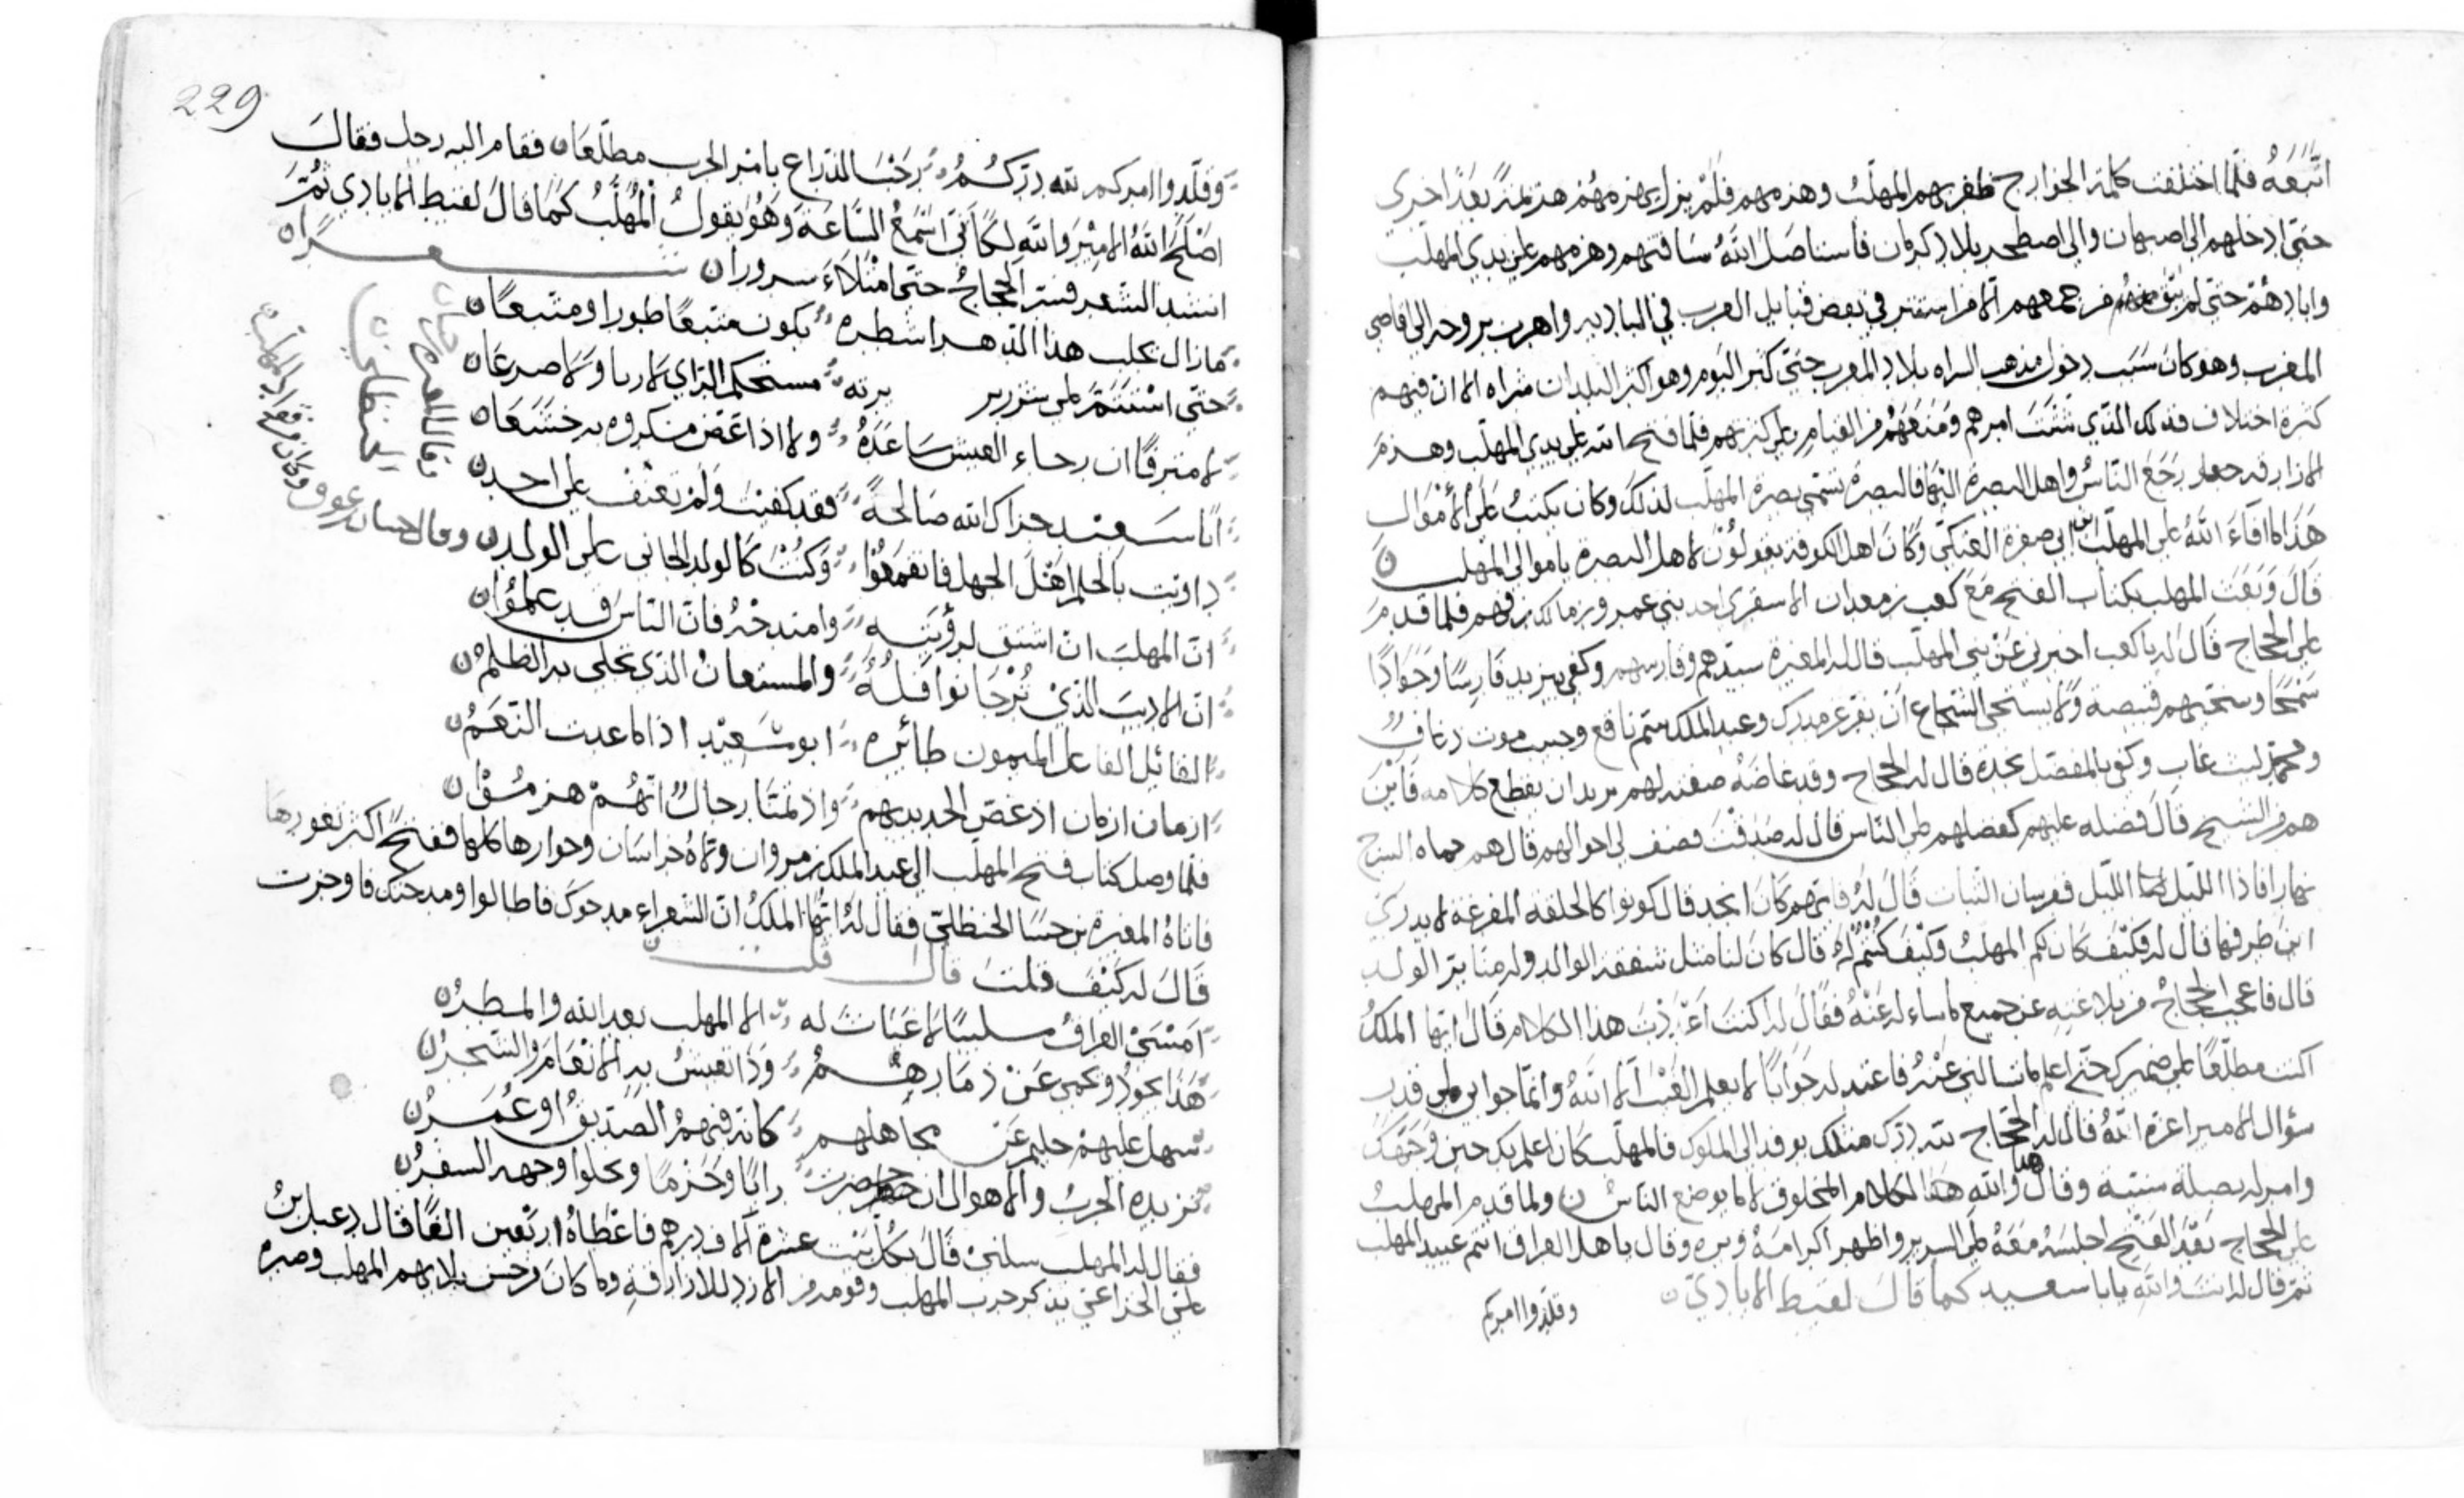 اتبعه فلما اختلفت كلمة الخوارج ظفر بهم المهلب وهزمهم فلم يزل يهزمهم هزيمة بعد اخرى
حتى ادخلهم الى اصبهان والى اصطخر بلاد كرمان فاستاصل الله شافتهم وهزمهم على يدي المهلب
وابادهم حتى لم يبق منهم من جمعهم الا من استتر في بعض قبايل العرب في البادية واهرب بروحه الى اقاصي
المغرب وهو كان سبب دخول مذهب الشراه بلاد المغرب حتى كثر اليوم وهو اكثر البلدان شراه الا ان فيهم
كثرة اختلاف فذلك الذي شتت امرهم ومنعهم من القيام على كثرتهم فلما فتح الله على يدي المهلب وهزم
الازارقه جعل رجع الناس واهل البصرة اليها فالبصرة تسمى بصرة المهلب لذلك وكان يكتب على الاموال
هذا ما افاء الله على المهلب بن ابي صفرة العتكي وكان اهل الكوفة يقولون لاهل البصرة يا موالي المهلب ن
قال وبعث المهلب بكتاب الفتح مع كعب بن معدان الاشقري احد بني عمرو بن مالك بن فهم فلما قدم
على الحجاج قال له يا كعب اخبرني عن بني المهلب قال له المغيرة سيدهم وفارسهم وكفى بيزيد فارسا وجوادا
سمحا وسخيهم قبيصة ولا يستحي الشجاع ان يفر عن مدرك وعبد الملك سم ناقع وحبيب موت ذعاف
ومحمد ليث غاب وكفى بالمفضل نجدة قال له الحجاج وقد غاضه صفته لهم يريد ان يقطع كلامه فاين
هم من الشيخ قال فضله عليهم كفضلهم على الناس قال له صدقت فصف لي احوالهم قال هم حماه السرح
نهارا فاذا الليل الليل ففرسان الثبات قال له فايهم كان انجد قال كونوا كالحلقه المفرغة لا يدرى
اين طرفها قال له فكيف كان لكم المهلب وكيف كنتم له قال كان لنا مثل شفقة الوالد وله منا بر الولد
قال فاعجب الحجاج من بلاغته عن جميع ما ساءله عنه فقال له اكنت اعددت هذا الكلام قال ايها الملك
اكنت مطلعا على ضميرك حتى اعلم ما تسالني عنه فاعتد له جوابا لا يعلم الغيب الا الله وانما جوابي على قدر
سؤال الامير اعزه الله قال له الحجاج لله درك مثلك يوفد الى الملوك فالمهلب كان اعلم بك حين وجهك
وامر له بصلة سنية وقال والله هذا الكلام المخلوق لا ما يوضع الناس ن ولما قدم المهلب
على الحجاج بعد الفتح اجلسه معه على السرير واظهر اكرامه وبره وقال يا اهل العراق انتم عبيد المهلب
ثم قال له انت والله يابا سعيد كما قال لقيط الايادي ن
وقلدوا امركم
229
وقلدوا امركم لله دركم رحب الذراع بامر الحرب مطلعا ن فقام اليه رجل فقال
اصلح الله الامير والله لكاني اسمع الساعة وهو يقول المهلب كما قال لقيط الايادي ثم
انشد الشعر فسر الحجاج حتى امتلاء سرورا ن شعرا ن
ما زال يحلب هذا الدهر اشطره يكون متبعا طورا ومتبعا ن
حتى استتم على شزر مريرته مستحكم الراي لا ريا ولا ضرعا ن
لا مترفا ان رخاء العيش ساعده ولا اذا عض مكروه به خشعا ن
ابا سعيد جزاك الله صالحة فقد كفيت ولم تعنف على احد ن
داويت بالحلم اهل الجهل فانقمعوا وكنت كالوالد الحاني على الولد ن وقال
ان المهلب ان اشتق لرؤيته وامتدحه فان الناس قد علموا ن
ان الاريب الذي ترجا نوافله والمستعان الذي تجلى به الظلم ن
القائل الفاعل الميمون طائره ابو سعيد اذا ما عدت النعم ن
ازمان ازمان اذ عض الحديد بهم واذ تمنا رجال انهم هزموا ن
فلما وصل كتاب فتح المهلب الى عبد الملك بن مروان ولاه خراسان وجوارها كلها ففتح اكثر ثغورها
فاتاه المغيرة بن حبنا الحنظلي فقال له ايها الملك ان الشعراء مدحوك فاطالوا ومدحتك فاوجزت
قال له كيف قلت قال قلت ن
امسى العراق سليبا لا غياث له الا المهلب بعد الله والمطر ن
هذا يجود ويحمي عن ذمارهم وذا تعيش به الانعام والشجر ن
سهل عليهم حليم عن مجاهلهم كانه فيهم الصديق او عمر ن
تزيده الحرب والاهوال ان حضرت رايا وحزما ويجلوا وجهه السفر ن
فقال له المهلب سلني قال بكل بيت عشرة الاف درهم فاعطاه اربعين الفا قال دعبل بن
علي الخزاعي يذكر حرب المهلب وقومه من الازد للازارقة وما كان من حسن بلايهم المهلب وصبره